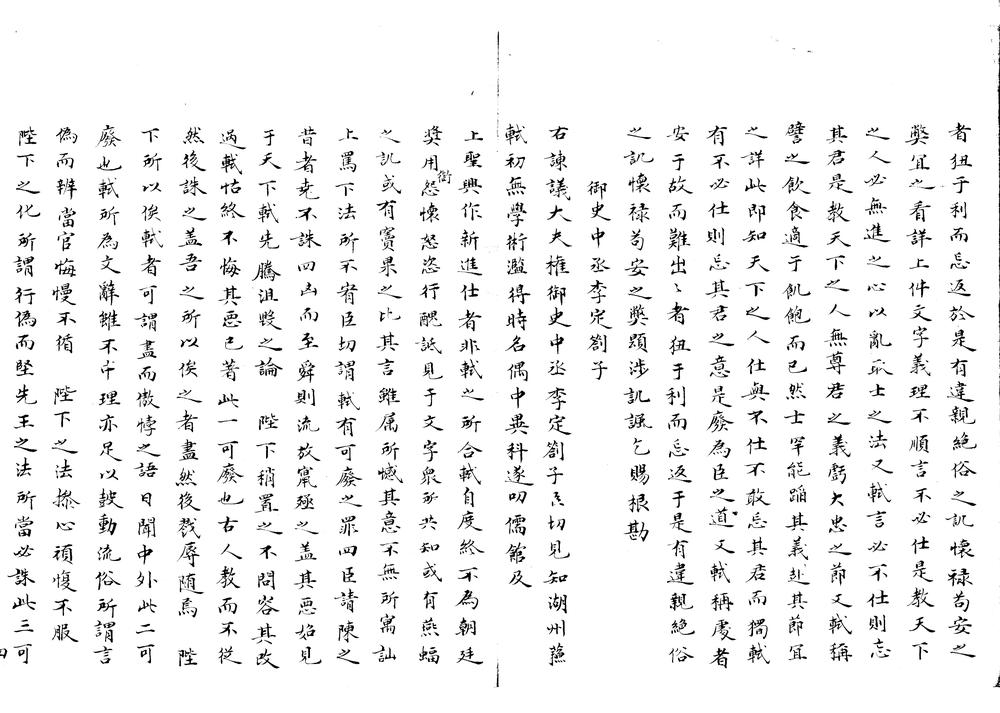 者狃于利而忘返於是有違親絶俗之訊懷祿苟安之
獘宜之看詳上件文字義理不順言不必仕是教天下
之人必無進之心以亂取士之法又軾言必不仕則忘
其君是教天下之人無尊君之義虧大忠之節又軾稱
譬之飲食適于飢飽而已然士罕能蹈其義赴其節宜
之詳此即知天下之人仕與不仕不敢忘其君而獨軾
有不必仕則忘其君之意是廢為臣之道又軾稱處者
安于故而難出〻者狃于利而忘返于是有違親絶俗
之訊懷祿苟安之獘顯涉訊諷乞賜根勘
御史中丞李定劄子
右諫議大夫權御史中丞李定劄子言切見知湖州蘓
軾初無學術濫得時名偶中異科遂叨儒館及
上聖興作新進仕者非軾之所合軾自度終不為朝廷
奬用銜怨懷怒恣行醜詆見于文字衆所共知或有燕蝠
之訊或有竇梁之比其言雖属所憾其意不無所寓訕
上罵下法所不宥臣切謂軾有可廢之罪四臣請陳之
昔者堯不誅四凶而至舜則流放竄殛之盖其惡始見
于天下軾先騰沮毁之論 陛下稍置之不問容其改
過軾怙終不悔其惡已著此一可廢也古人教而不從
然後誅之盖吾之所以俟之者盡然後戮辱随焉 陛
下所以俟軾者可謂盡而傲悖之語日聞中外此二可
廢也軾所為文辭雖不中理亦足以鼓動流俗所謂言
偽而辨當官悔慢不循 陛下之法操心頑愎不服
陛下之化所謂行偽而堅先王之法所當必誅此三可